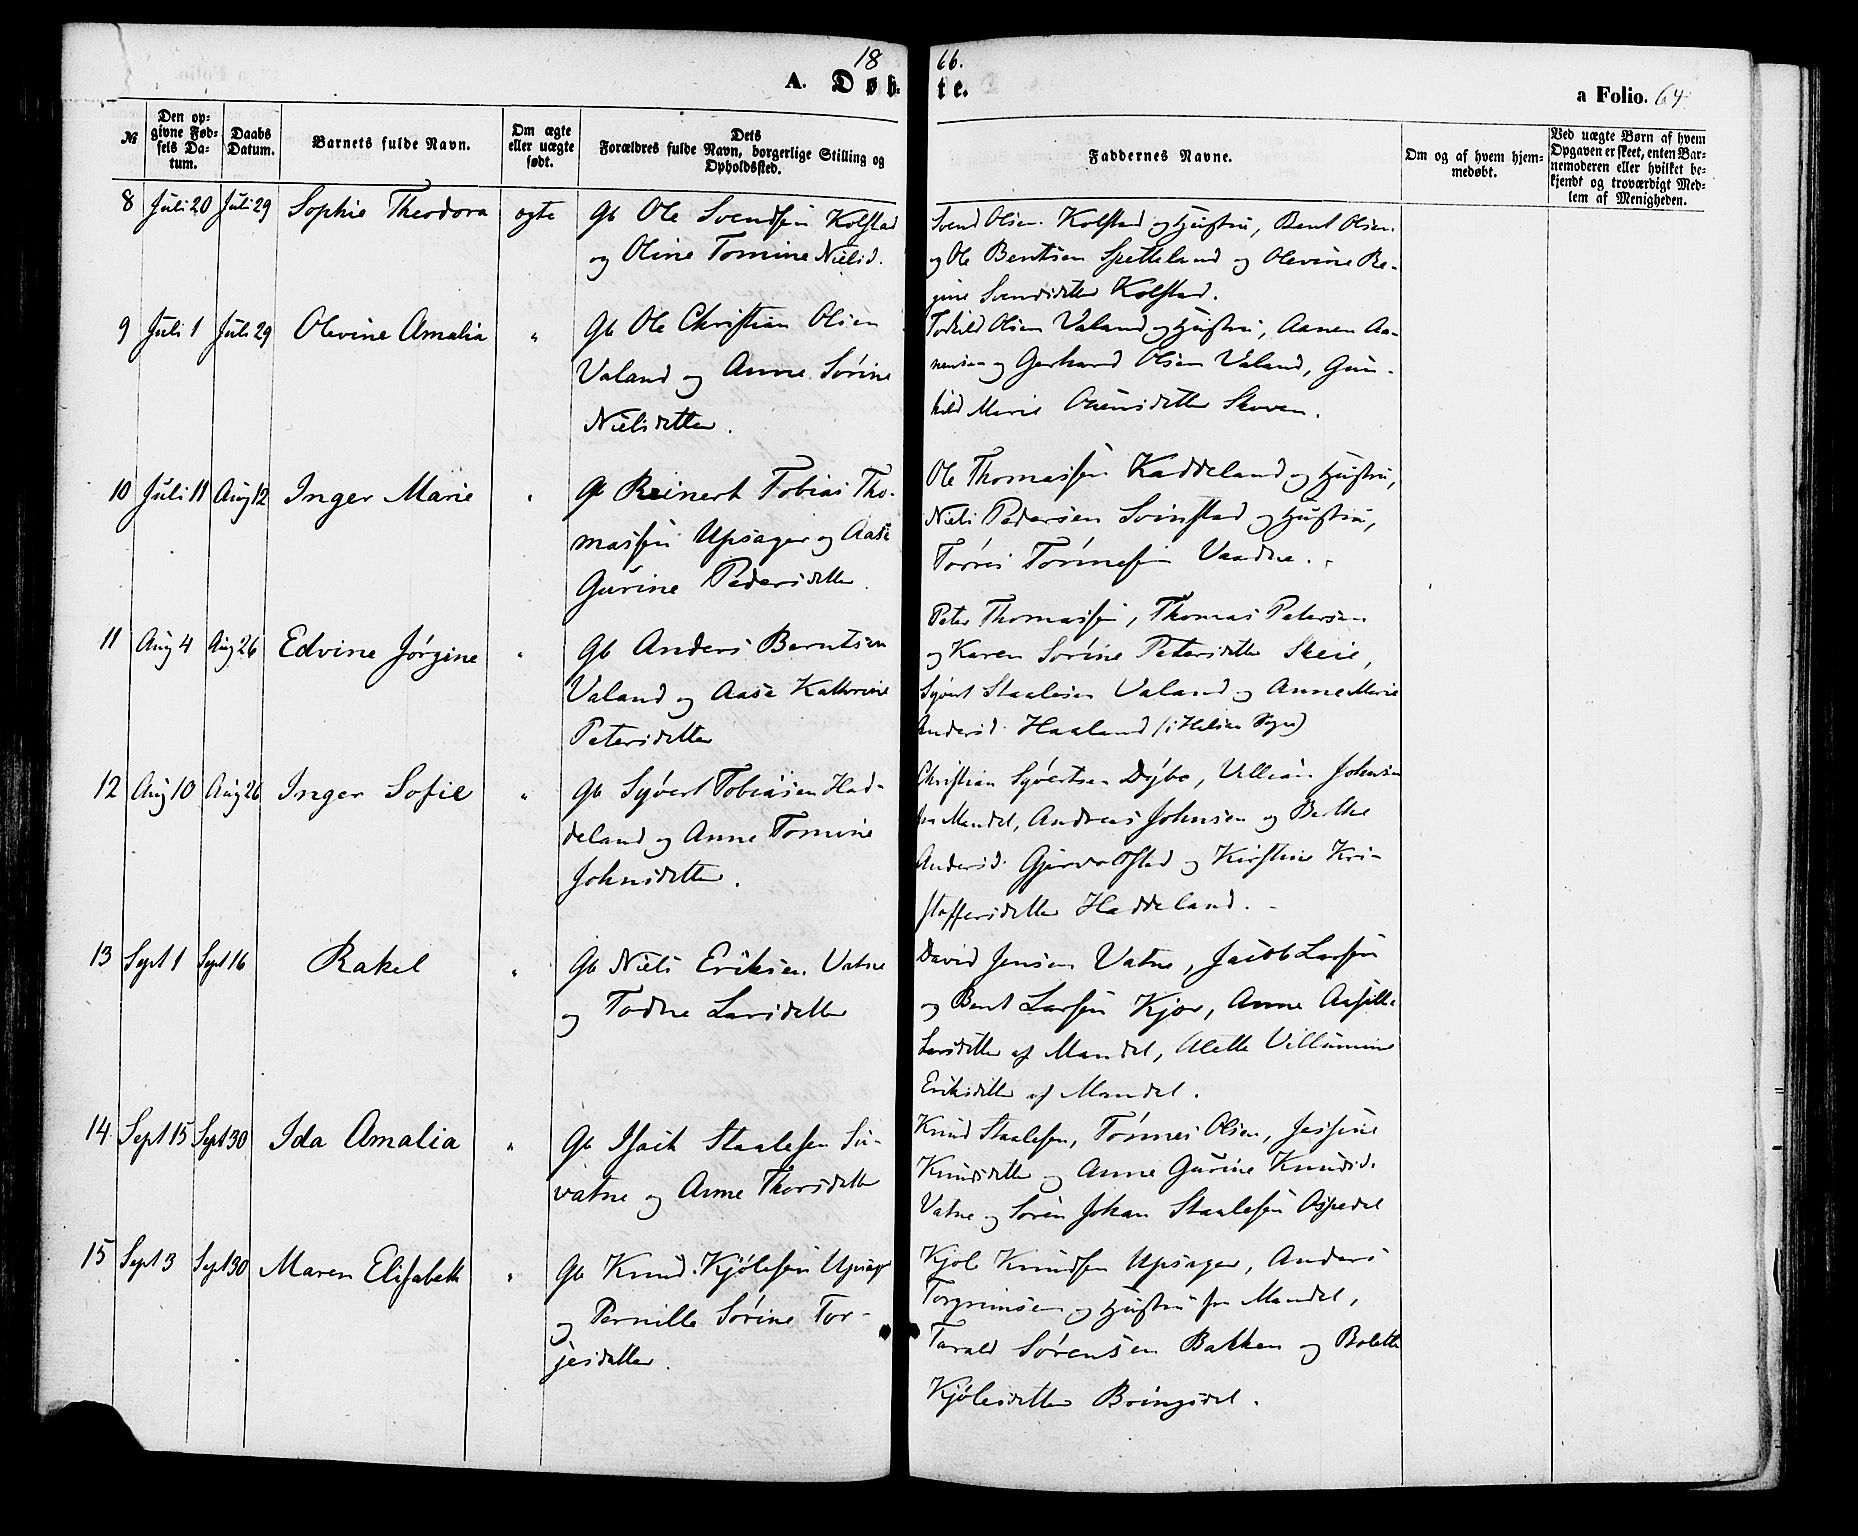 1866.
A. Døbte.
a Folio. 64.
№
Den opgivne Fødsels Datum.
Daabs Datum.
Barnets fulde Navn.
Om ægte eller uægte født.
Dets Forældres fulde Navn, borgerlige Stilling og Opholdssted.
Faddernes Navne.
Om og af hvem hjemmedøbt.
Ved uægte Børn af hvem Opgaven er skeet, enten Barnemoderen eller hvilket bekjendt og troværdigt Medlem af Menigheden.
8 Juli 20 Juli 29 Sophie Theodora ægte Gb Ole Svendsen Kolstad
og Oline Tomine Nielsd.
Svend Olsen Kolstad og Hustru, Bent Olsen
og Ole Bentsen Spetteland og Olevine Re-
gine Svendsdatter Kolstad.
9 Juli 1 Juli 29 Olevine Amalia " Gb Ole Christian Olsen
Valand og Anne Sørine
Nielsdatter.
Torkild Olsen Valand og Hustru, Aanen Aa-
nensen og Gerhard Olsen Valand, Gun-
hild Marie Skoven.
10 Juli 11 Aug 12 Inger Marie " Gb Reinert Tobias Tho-
massen Upsager og Aase
Gurine Pedersdatter.
Ole Thomassen Haddeland og Hustru,
Niels Pedersen Svinstad og Hustru,
Tørres Tønnesen
11 Aug 4 Aug 26 Edvine Jørgine " Gb Anders Berntsen
Valand og Aase Kathrine
Petersdatter
Peter Thomassen, Thomas Petersen
og Karen Sørine Petersdatter Skeie,
Syvert Staalesen Valand og Anne Marie
Andersd. Haaland
12 Aug 10 Aug 26 Inger Sofie " Gb Syvert Tobiasen Had-
deland og Anne Tomine
Johnsdatter.
Christian Syvertsen Dybo, Villiam Johnsen
fra Mandal, Andreas Johnsen og Berthe
Andersd. og Kirstine Kri-
stoffersdatter Haddeland.
13 Sept 1 Sept 16 Rakel " Gb Niels Eriksen Vatne
og Todne Larsdatter
David Jensen Vatne, Jacob Larsen
og Bent Larsen Kjør, Anne
Larsdatter af Mandal, Alette Villumine
Eriksdatter af Mandal.
14 Sept 15 Sept 30 Ida Amalia " Gb Isaik Staalesen Si-
vatne og Anne Thorsdatter
Knud Staalesen, Tønnes Olsen, Jessine
Knudsdatter og Anne Gurine Knudsd.
Vatne og Søren Johan Staalesen Ospedal
15 Sept 3 Sept 30 Maren Elisabeth " Gb Knud Kjølesen Upsager
og Pernille Sørine Tor-
jesdatter.
Kjøl Knudsen Upsager, Anders
Torgrimsen og Hustru fra Mandal,
Tarald Sørensen Bakken og Bolette
Kjølesdatter Bringsdal.